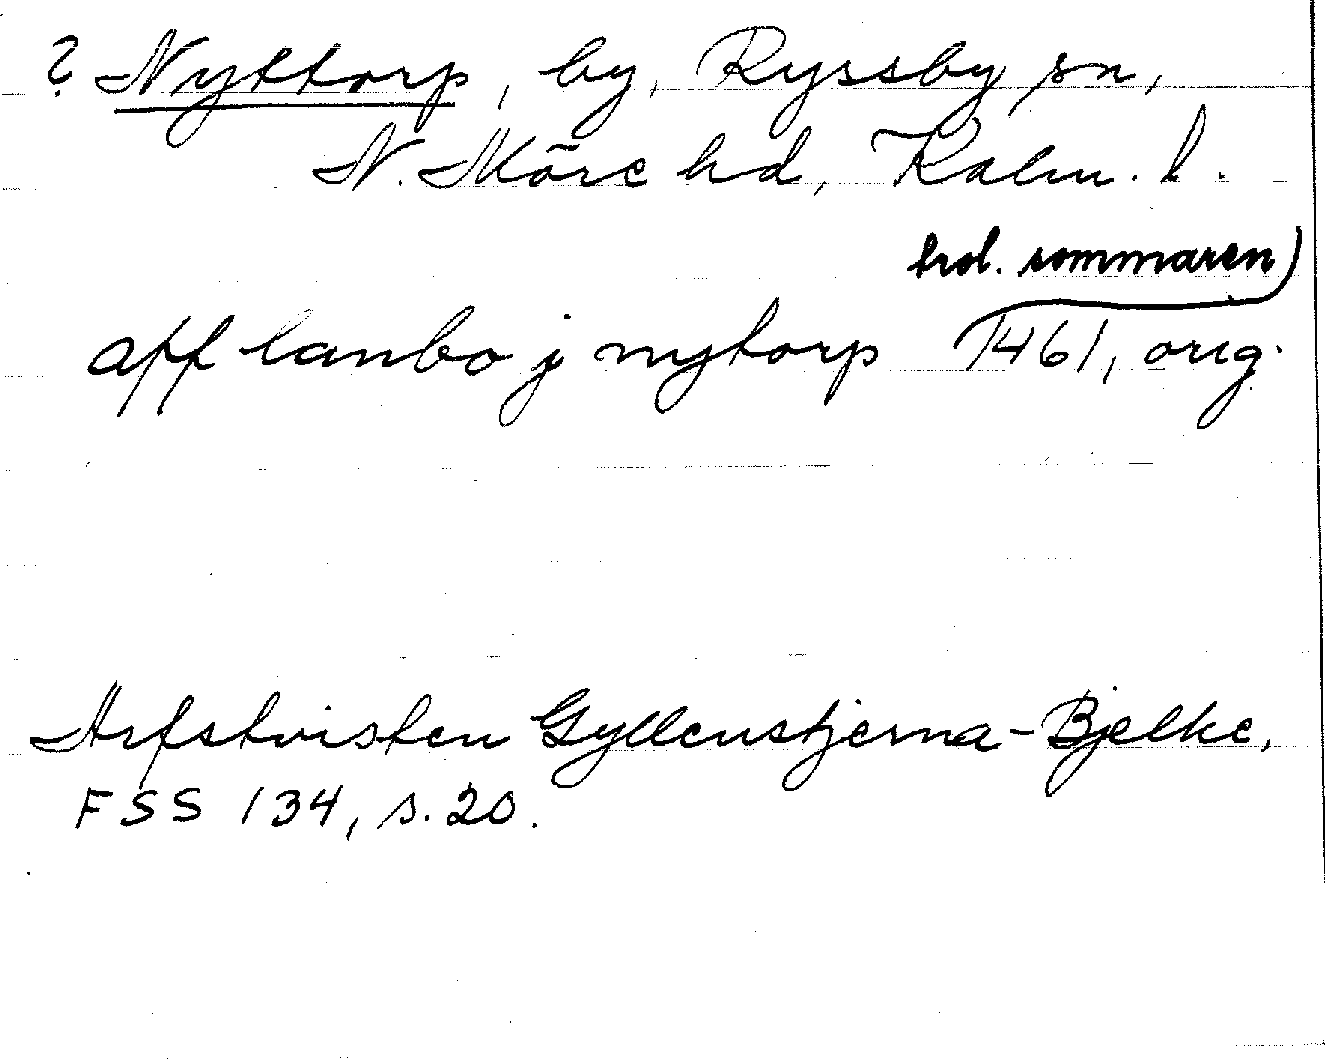 ? Nyttorp, by, Ryssby sn,
N. Möre hd, Kalm. l.
trol. sommaren
aff lanbo j nytorp 1461, orig.
Arfstvisten Gyllenstjerna-Bjelke,
FSS 134, s. 20.